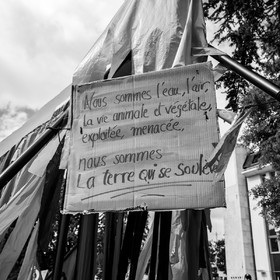 Nous sommes l'eau, l'air,
la vie animale & végétale,
exploitée, menacée,
nous sommes
La terre qui se soulève